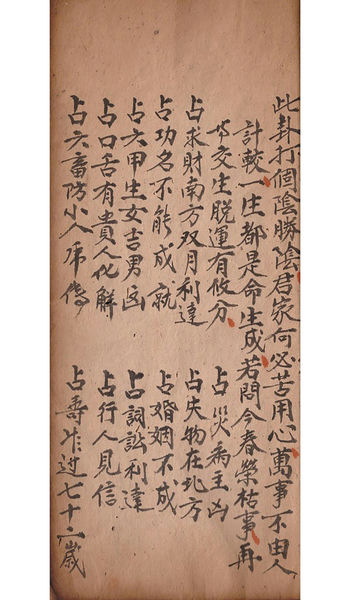 此卦打個陰勝陰君家何必苦用心萬事不由人
計較一生都是命生成若問今春榮枯事再
交生脱運有攸分 占災為主凶
占求財南方双月利達 占失物在北方
占功名不能成就 占婚姻不成
占六甲生女吉男凶 占詞訟利達
占口舌有貴人化解 占行人見信
占六畜防小人 占壽 过七十 歲